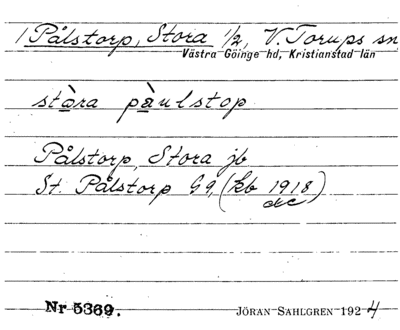 1 Pålstorp, Stora 1/2, V. Torups sn
Västra Göinge hd, Kristianstad län
stàra pàulstop
Pålstorp, Stora jb
St. Pålstorp G9, (Kb 1918)
dc
Nr 5369.
JÖRAN SAHLGREN 1924